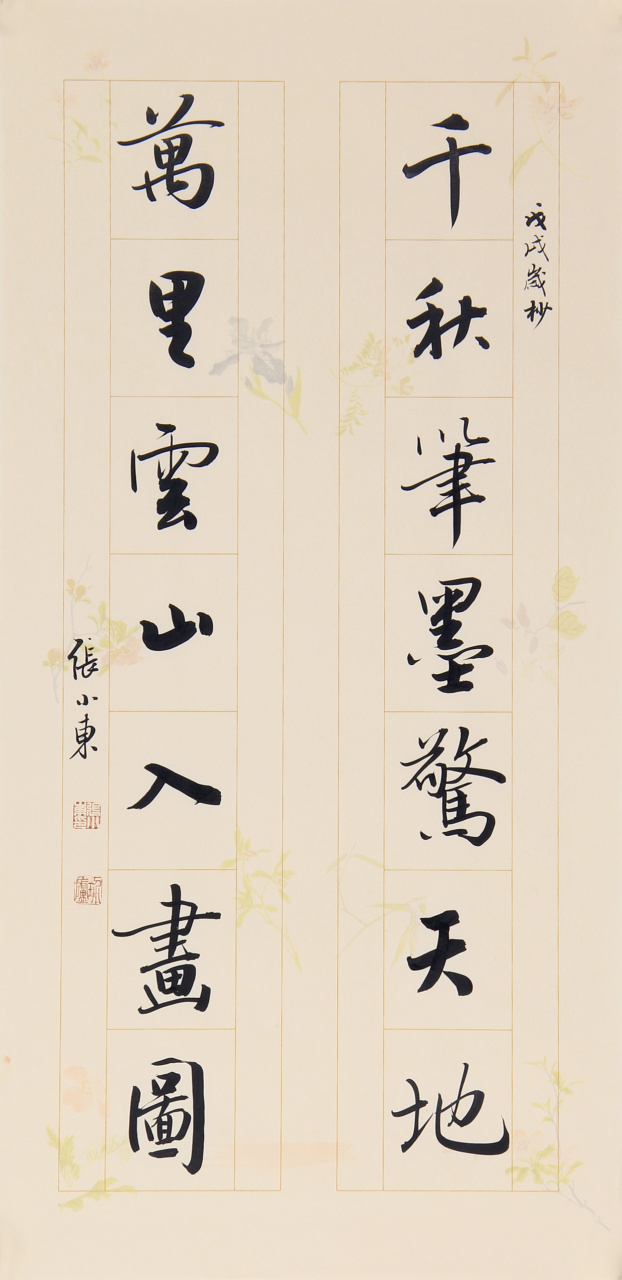 戊戌歲杪
千秋筆墨驚天地
萬里雲山入畫圖
張小東